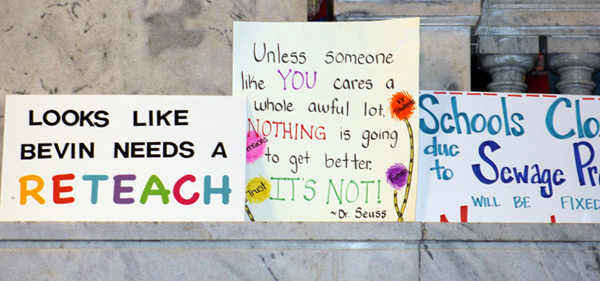 LOOKS LIKE
BEVIN NEEDS A
RETEACH
Unless someone
like YOU cares a
whole awful lot,
NOTHING is going
to get better.
IT'S NOT!
~Dr. Seuss
KY
Students
Trust
Future
Schools Clo
due
to Sewage Pr
WILL BE FIXED